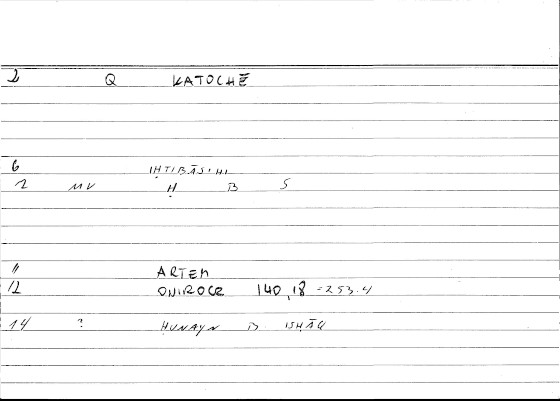 2 Q KATOCHĒ
6 IḤTIBĀSIHI
7 MV Ḥ B S
11 ARTEM
12 ONIROCR 140,18 =253.4
14 ? ḤUNAYN B ISḤĀQ